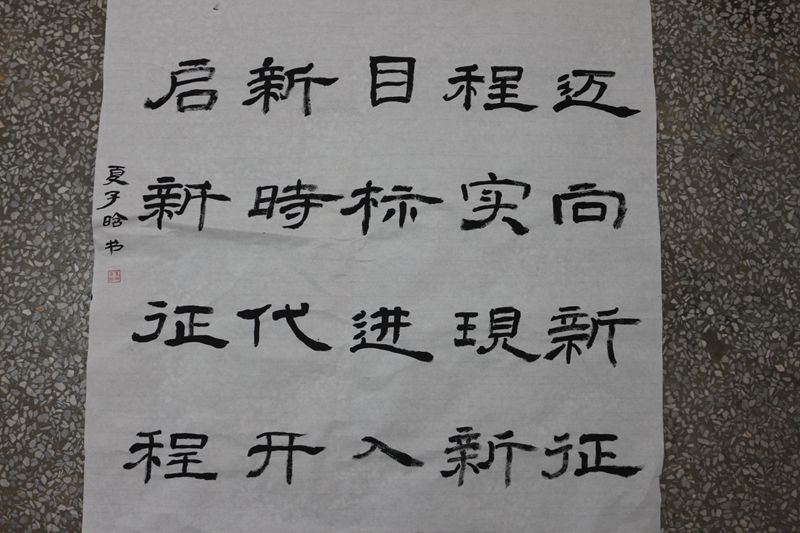 迈向新征
程实現新
目标进入
新時代开
启新征程
夏子晗书